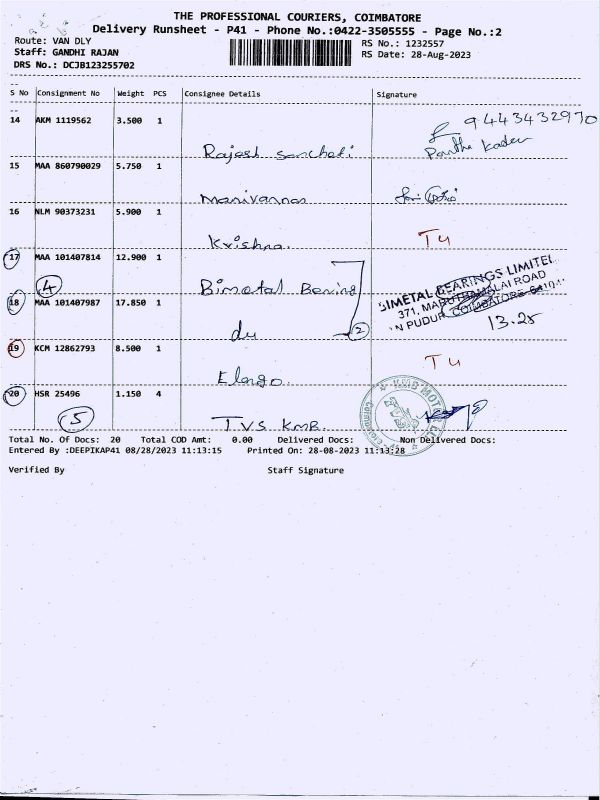 THE PROFESSIONAL COURIERS, COIMBATORE
Delivery Runsheet - P41 - Phone No.:0422-3505555 - Page No.:2
Route: VAN DLY
RS No.: 1232557
Staff: GANDHI RAJAN
RS Date: 28-Aug-2023
DRS No.: DCJB123255702
S No Consignment No Weight PCS Consignee Details Signature
14 AKM 1119562 3.500 1 9443432970
Rajesh Sancheti
15 MAA 860790029 5.750 1
Manivannan
16 NLM 90373231 5.900 1 T4
Krishna.
17 MAA 101407814 12.900 1 BIMETAL BEARINGS LIMITED
4 Bimetal Bering 371, MARUTHAMALAI ROAD
18 MAA 101407987 17.850 1 N PUDUR, COIMBATORE
du 2 13.25
19 KCM 12862793 8.500 1 T4
Elango.
20 HSR 25496 1.150 4 KMB MOTO
5 TVS KMB.
Total No. Of Docs: 20 Total COD Amt: 0.00 Delivered Docs: Non Delivered Docs:
Entered By :DEEPIKAP41 08/28/2023 11:13:15 Printed On: 28-08-2023 11:13:28
Verified By Staff Signature